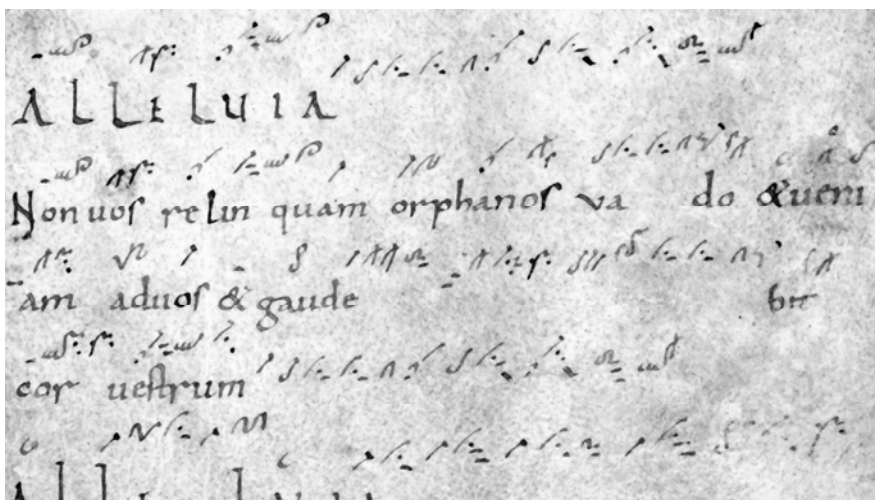 ALLELUIA
Non vos relin quam orphanos va do & veni
am ad vos & gaude bit
cor vestrum